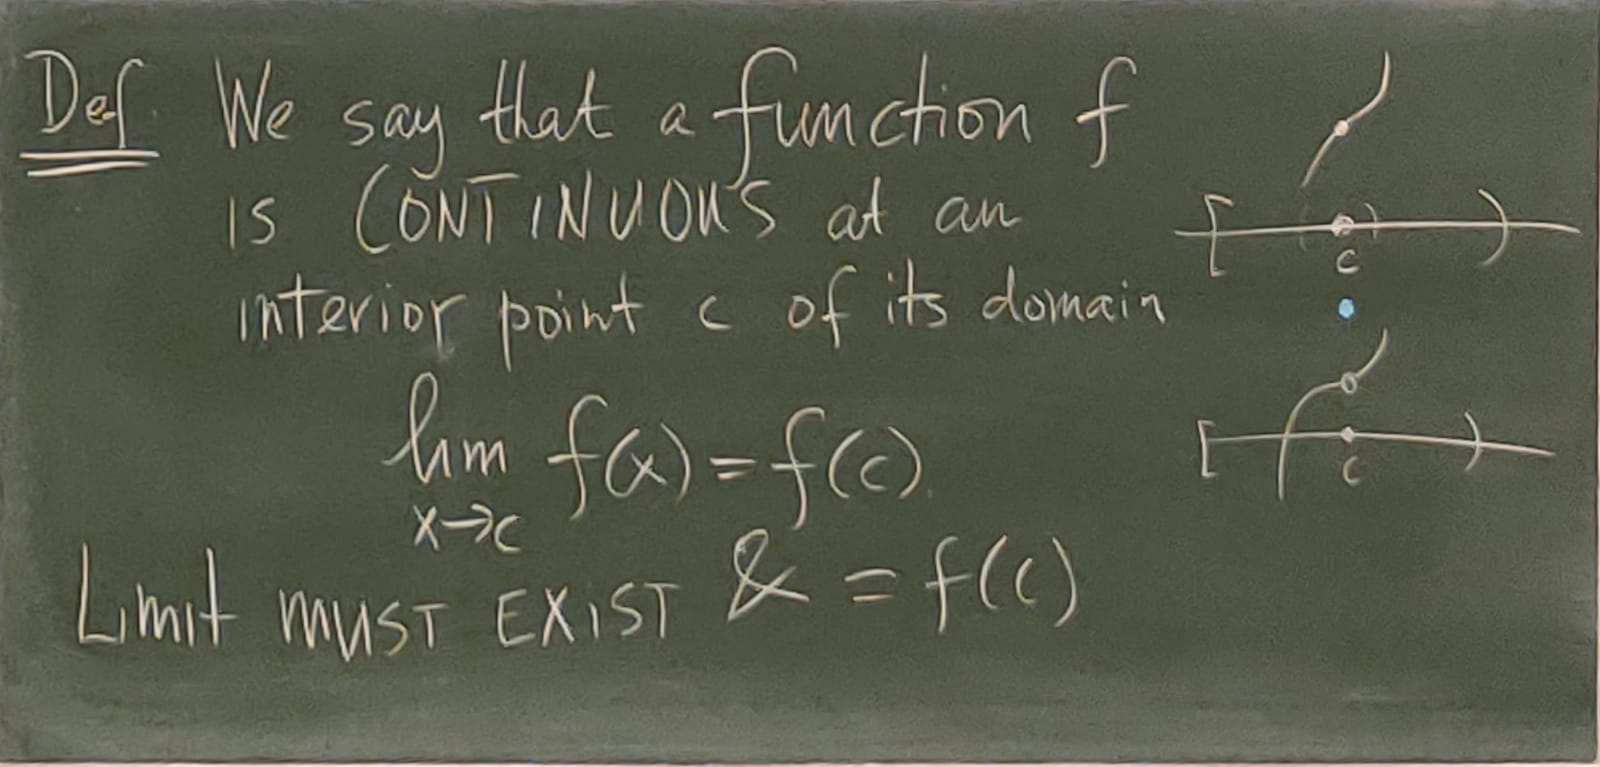 Def. We say that a function f
is CONTINUOUS at an
interior point c of its domain
lim f(x) = f(c).
x→c
Limit MUST EXIST & = f(c)
[ ( ) )
c
[ )
c